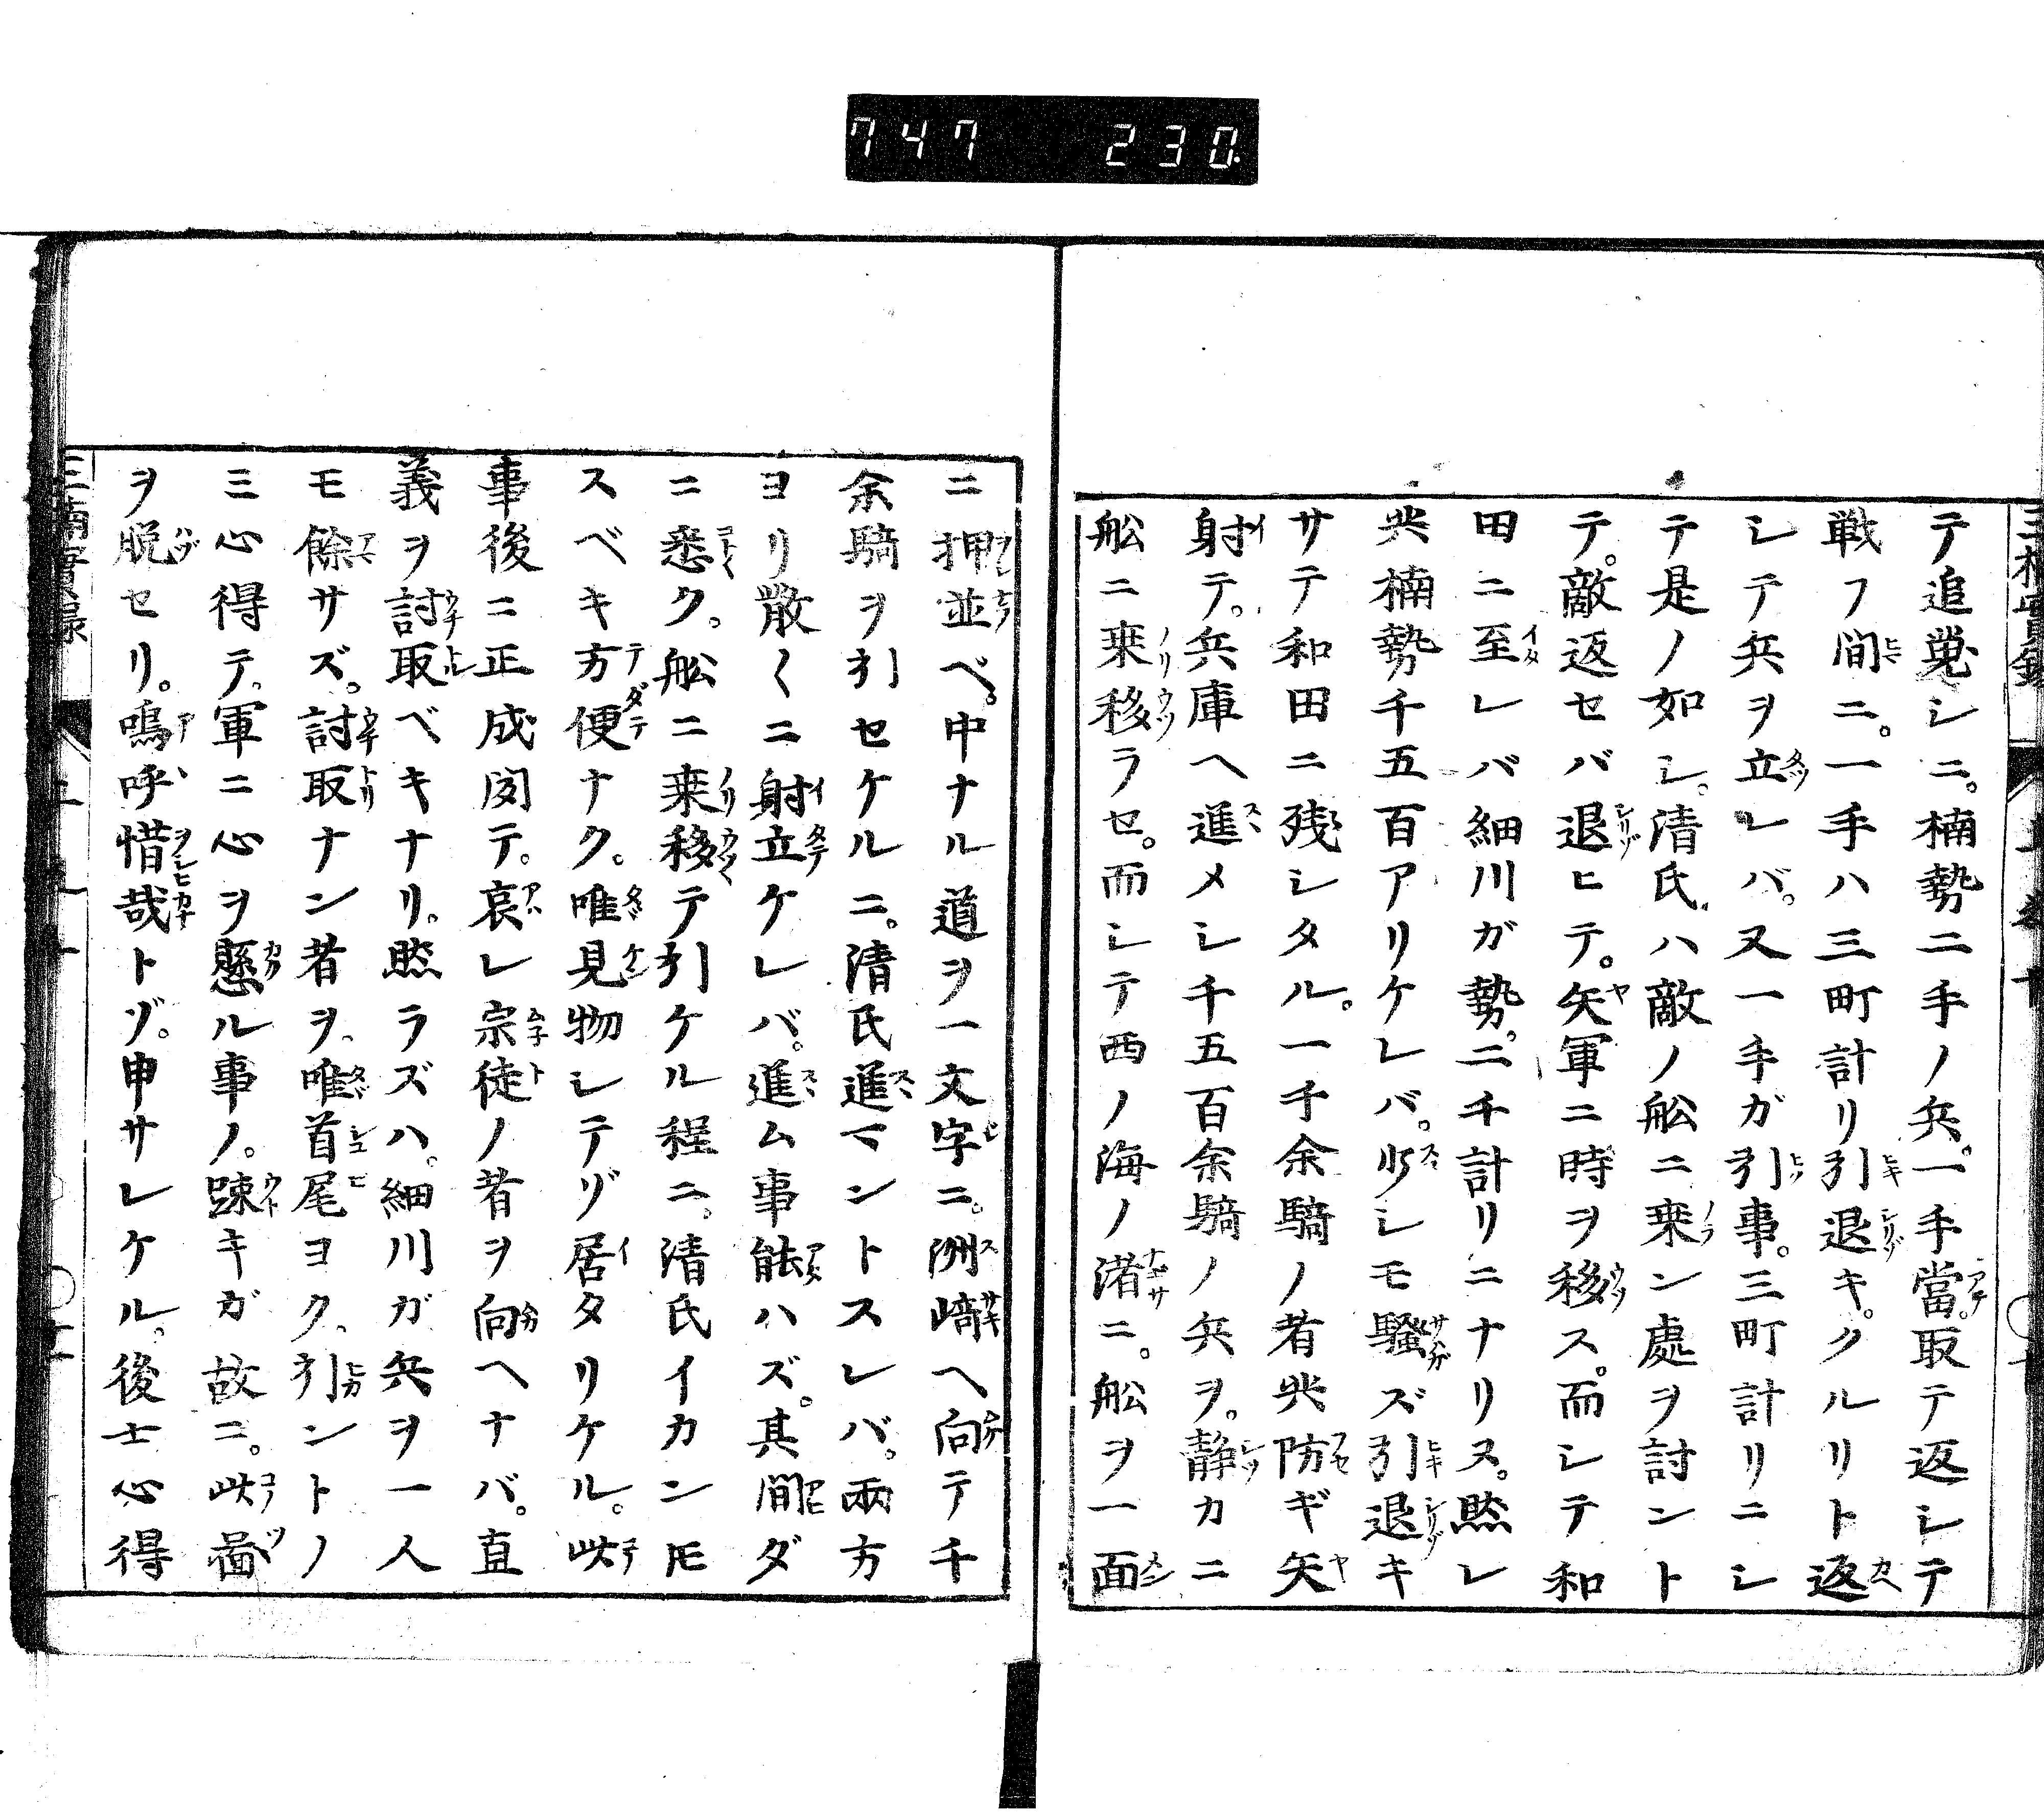 747 230.
テ追蒐シニ。楠勢二手ノ兵。一手當。取テ返シテ
戦フ間ニ。一手ハ三町計リ引退キ。クルリト返
シテ兵ヲ立レバ。又一手ガ引事。三町計リニシ
テ是ノ如シ。清氏ハ敵ノ舩ニ乗ン處ヲ討ント
テ。敵返セバ退ヒテ。矢軍ニ時ヲ移ス。而シテ和
田ニ至レバ細川ガ勢。二千計リニナリヌ。然レ
共楠勢千五百アリケレバ。少シモ騒ズ引退キ
サテ和田ニ残シタル。一千余騎ノ者共防ギ矢
射テ。兵庫ヘ進メシ千五百余騎ノ兵ヲ。静カニ
舩ニ乗移ラセ。而シテ西ノ海ノ渚ニ。舩ヲ一面
ニ押並ベ。中ナル道ヲ一文字ニ。洲崎ヘ向テ千
余騎ヲ引セケルニ。清氏進マントスレバ。兩方
ヨリ散〱ニ射立ケレバ。進ム事能ハズ。其間ダ
ニ悉ク。舩ニ乗移テ引ケル程ニ。清氏イカントモ
スベキ方便ナク。唯見物シテゾ居タリケル。此
事後ニ正成聞テ。哀レ宗徒ノ者ヲ向ヘナバ。直
義ヲ討取ベキナリ。然ラズハ。細川ガ兵ヲ一人
モ餘サズ。討取ナン者ヲ。唯首尾ヨク。引ントノ
ミ心得テ。軍ニ心ヲ懸ル事ノ。踈キガ故ニ。此圖
ヲ脱セリ。嗚呼惜哉トゾ。申サレケル。後士心得